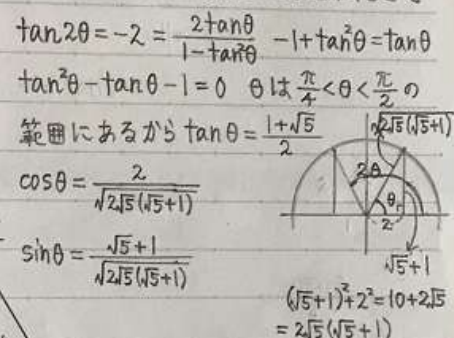 tan2θ=-2=2tanθ/(1-tan²θ) -1+tan²θ=tanθ
tan²θ-tanθ-1=0 θは π/4<θ<π/2 の
範囲にあるから tanθ=(1+√5)/2
√2√5(√5+1)
cosθ=2/√2√5(√5+1)
2θ
θ
2
sinθ=(√5+1)/√2√5(√5+1)
√5+1
(√5+1)²+2²=10+2√5
=2√5(√5+1)